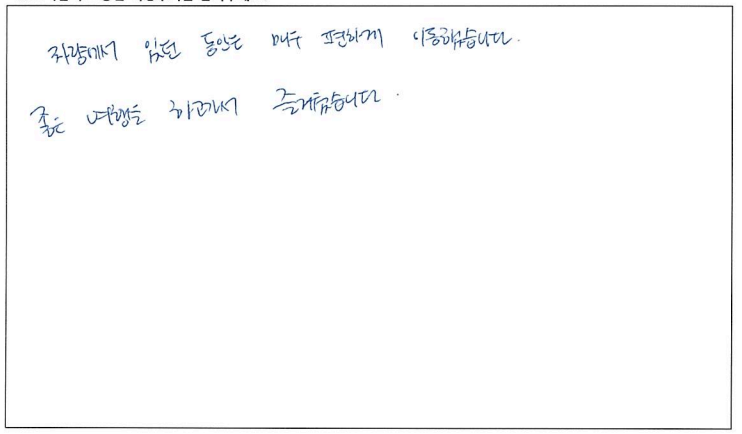 차량에서 있던 동안은 매우 편하게 이동했습니다.
좋은 여행을 하고가서 즐거웠습니다.